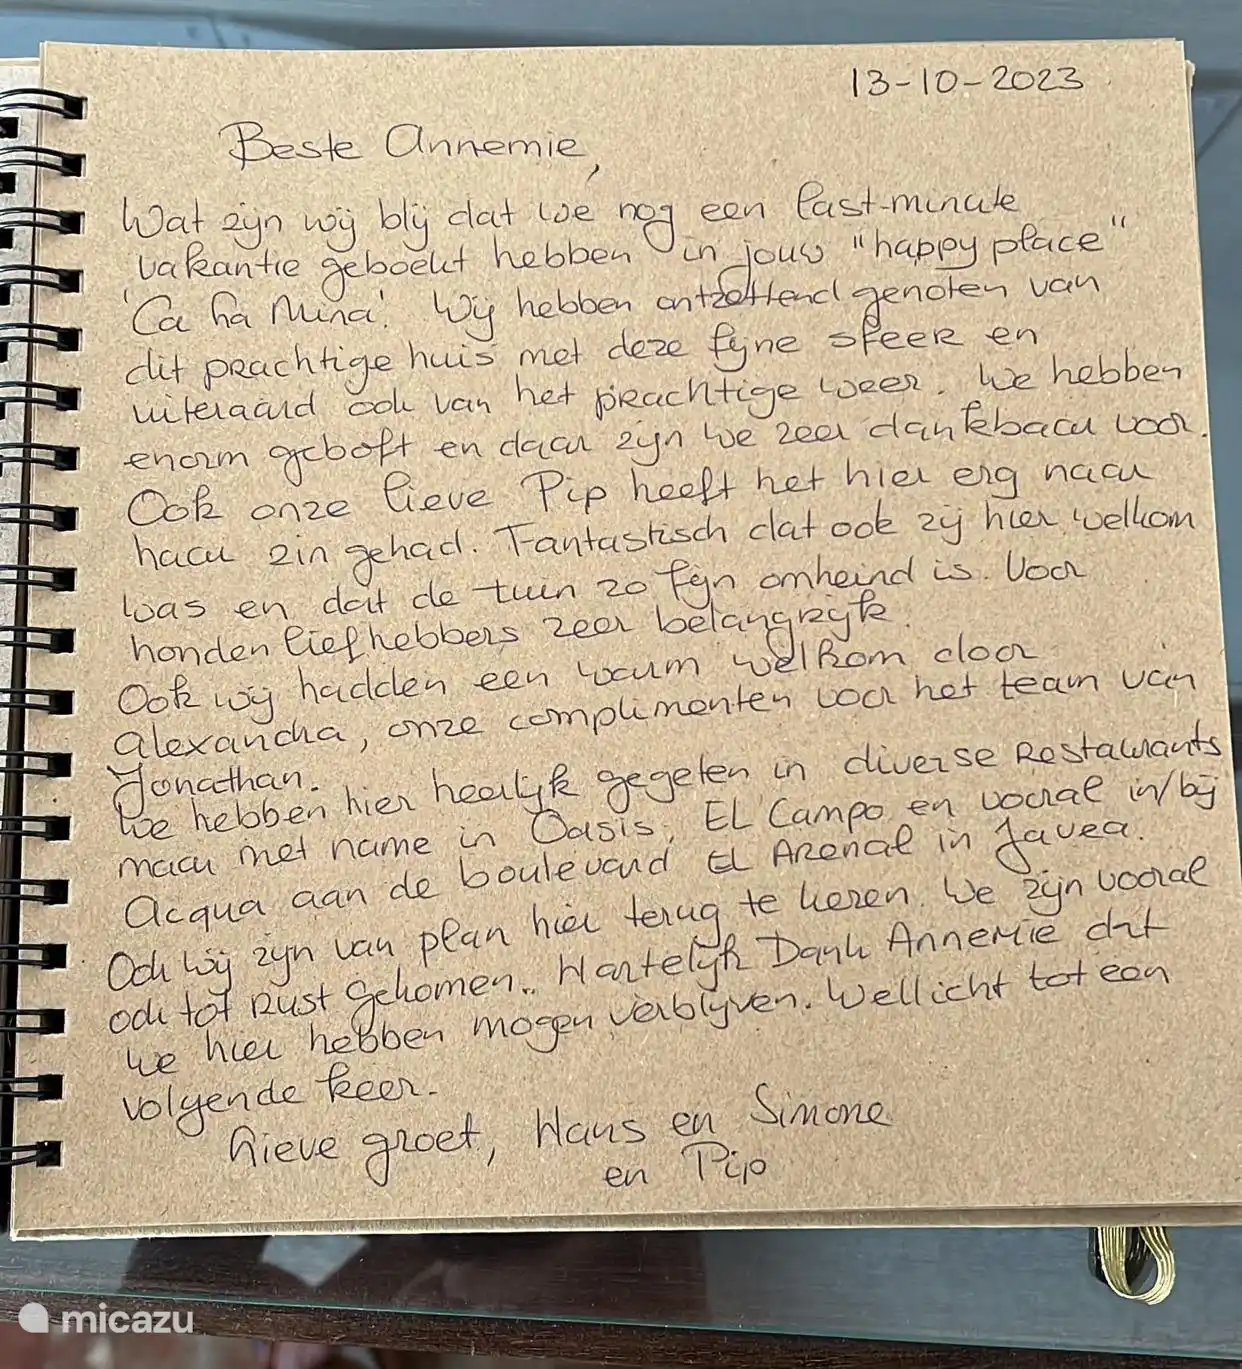 13-10-2023
Beste Annemie,
Wat zijn wij blij dat we nog een last-minute
vakantie geboekt hebben in jouw "happy place"
'Ca Ha Mina'. Wij hebben ontzettend genoten van
dit prachtige huis met deze fijne sfeer en
uiteraard ook van het prachtige weer. We hebben
enorm geboft en daar zijn we zeer dankbaar voor.
Ook onze lieve Pip heeft het hier erg naar
haar zin gehad. Fantastisch dat ook zij hier welkom
was en dat de tuin zo fijn omheind is. Voor
honden liefhebbers zeer belangrijk.
Ook wij hadden een warm welkom door
Alexandra, onze complimenten voor het team van
Jonathan.
We hebben hier heerlijk gegeten in diverse Restaurants
maar met name in Oasis, EL Campo en vooral in/bij
Acqua aan de boulevard El Arenal in Javea.
Ook wij zijn van plan hier terug te keren. We zijn vooral
ook tot rust gekomen.. Hartelijk Dank Annemie dat
we hier hebben mogen verblijven. Wellicht tot een
volgende keer.
Lieve groet, Hans en Simone
en Pip
micazu